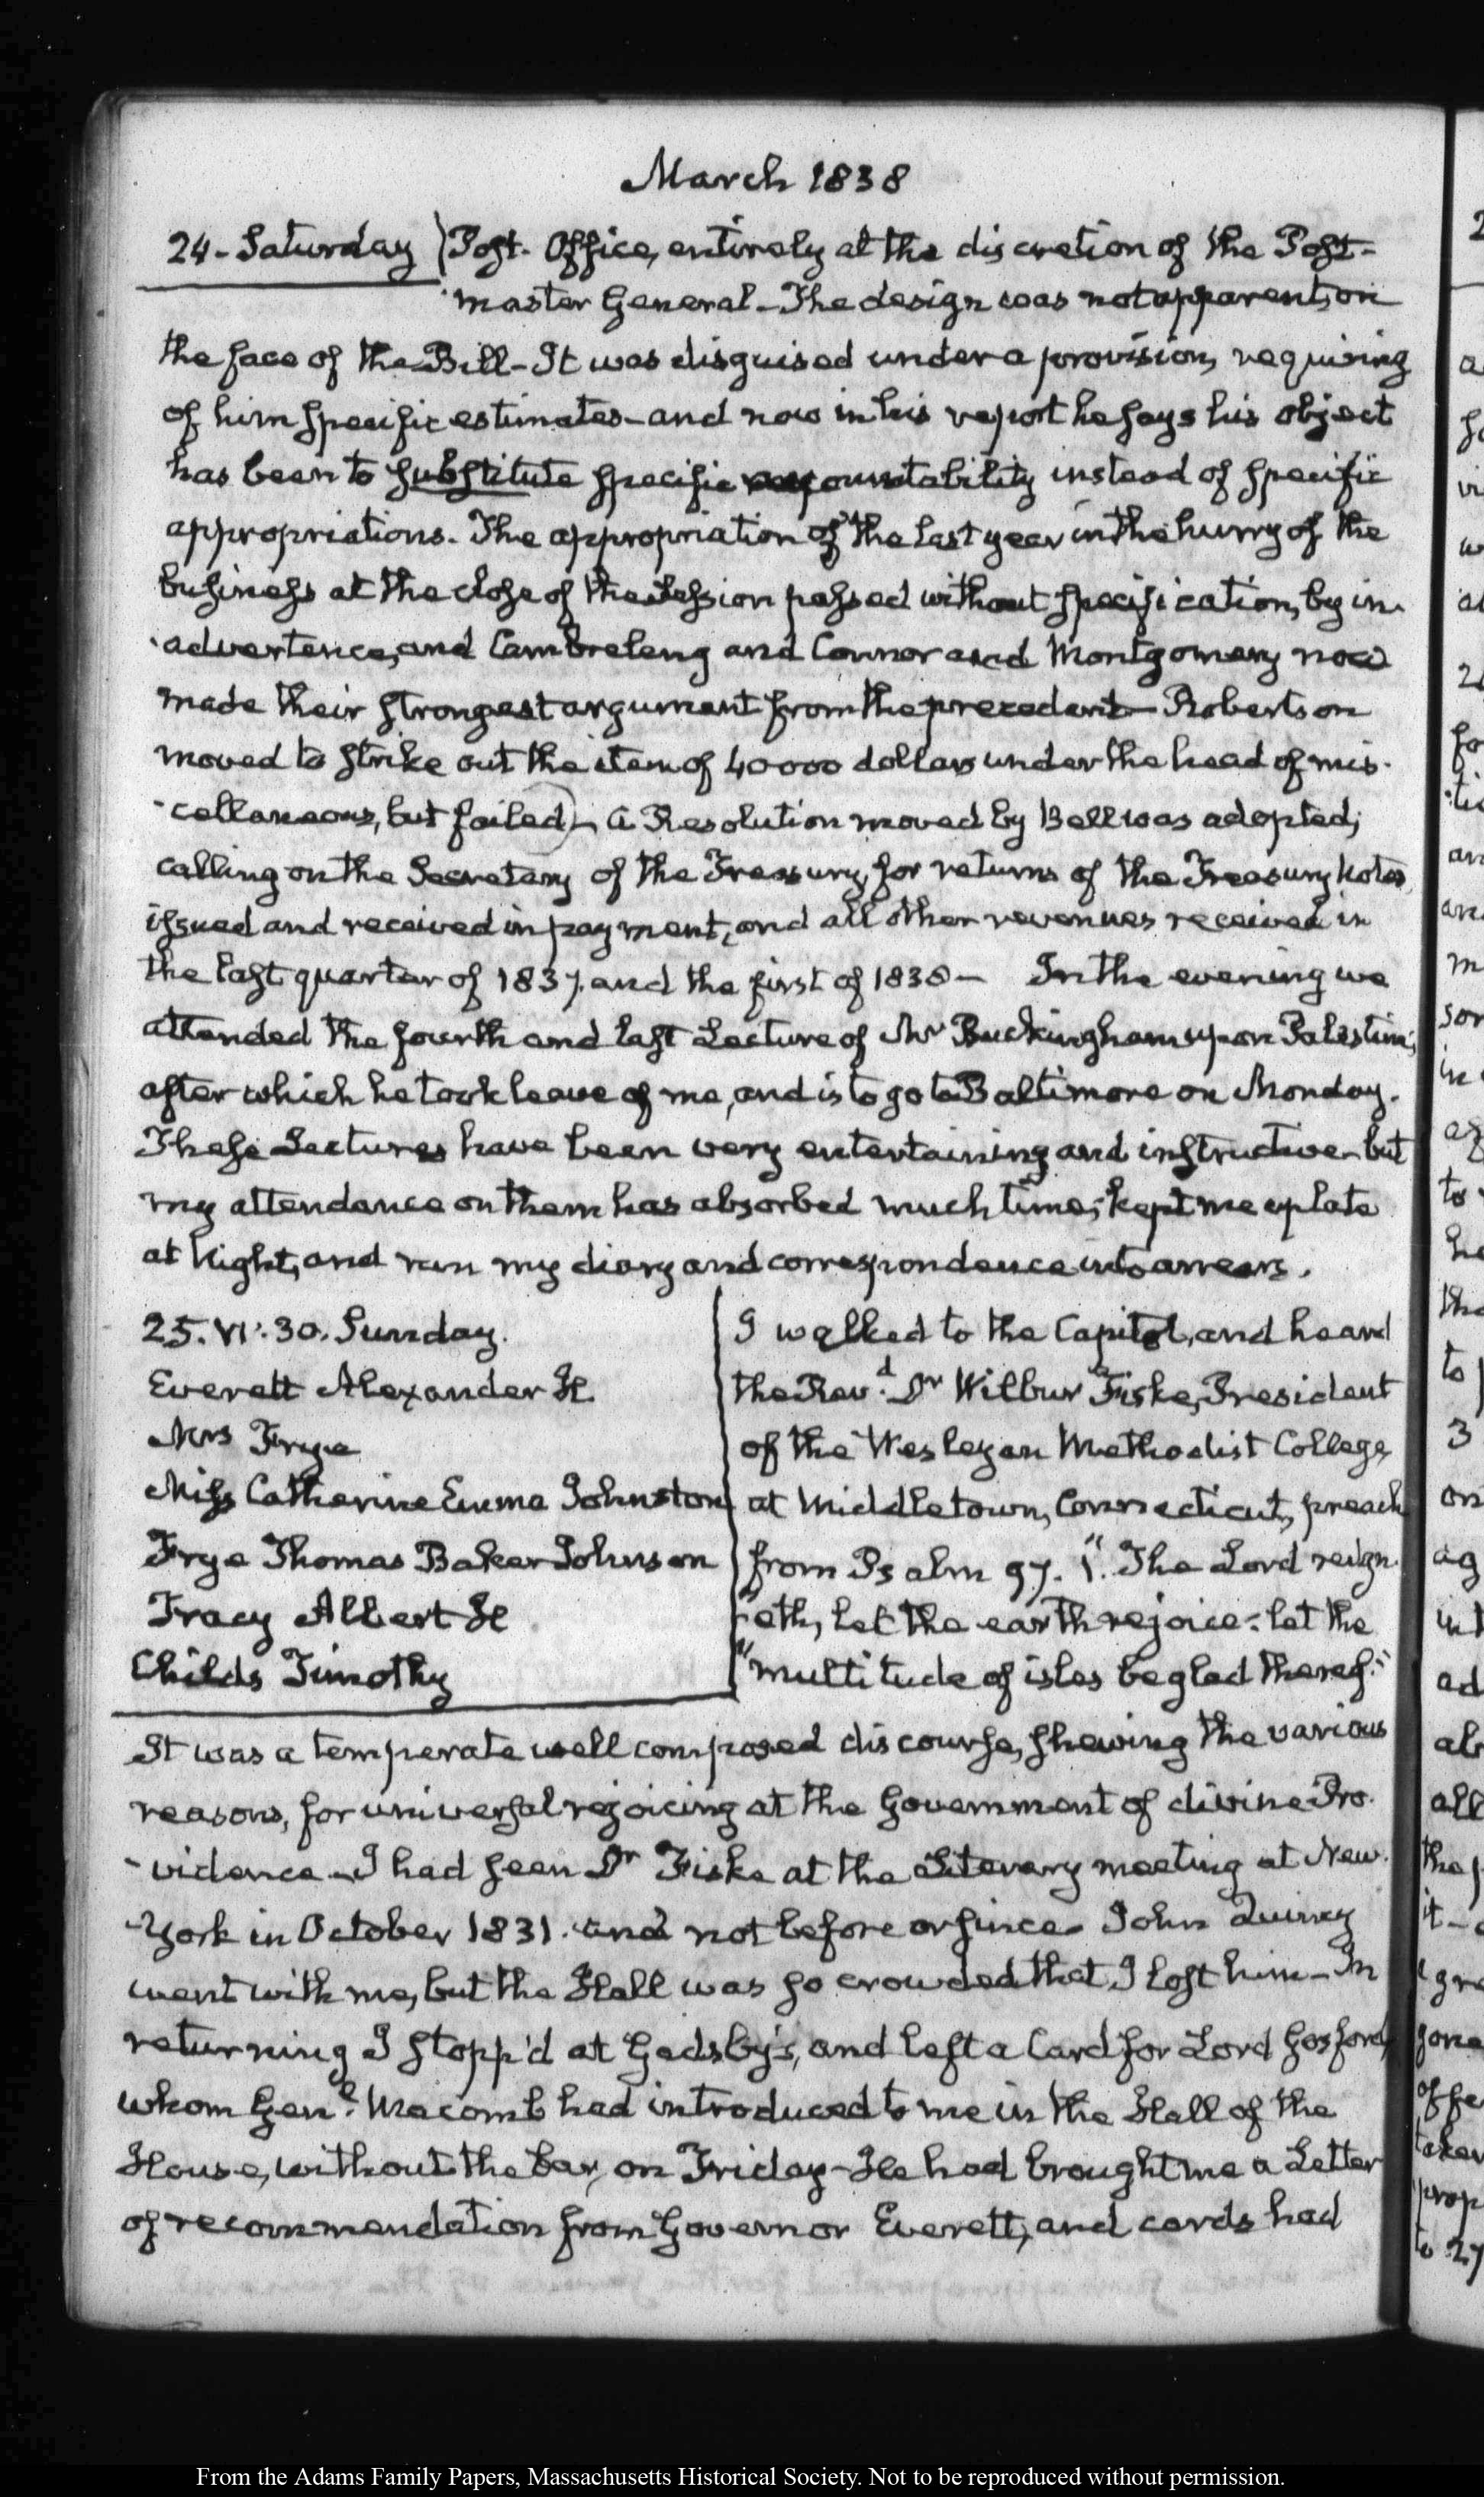 March 1838
24 - Saturday Post-Office, entirely at the discretion of the Post-
master General - The design was not apparent, on
the face of the Bill - It was disguised under a provision, requiring
of him specific estimates - and now in his report he says his object
has been to substitute specific accountability instead of specific
appropriations. The appropriation of the last year in the hurry of the
business at the close of the Session passed without specification, by in-
-advertence, and Cambreleng and Connor and Montgomery now
made their strongest argument from the precedent - Robertson
moved to strike out the item of 40000 dollars under the head of mis-
-cellaneous, but failed - A Resolution moved by Bell was adopted;
calling on the Secretary of the Treasury, for returns of the Treasury Notes
issued and received in payment, and all other revenues received in
the last quarter of 1837. and the first of 1838 - In the evening we
attended the fourth and last Lecture of Mr Buckingham upon Palestine;
after which he took leave of me, and is to go to Baltimore on Monday.
These Lectures have been very entertaining and instructive - but
my attendance on them has absorbed much time; kept me up late
at Night, and run my diary and correspondence into arrears.
25. VI. 30. Sunday.
Everett Alexander H.
Mrs Frye
Miss Catherine Emma Johnston
Frye Thomas Baker Johnson
Tracy Albert H
Childs Timothy
I walked to the Capitol, and heard
the Revd. Dr Wilbur Fiske, President
of the Wesleyan Methodist College
at Middletown, Connecticut, preach
from Psalm 97. 1. "The Lord reign-
"-eth, let the earth rejoice: let the
"multitude of isles be glad thereof."
It was a temperate well composed discourse, shewing the various
reasons, for universal rejoicing at the Government of divine Pro-
-vidence - I had seen Dr Fiske at the Literary meeting at New-
-York in October 1831. and not before or since - John Quincy
went with me, but the Hall was so crowded that I lost him - In
returning I stopp'd at Gadsby's, and left a Card for Lord Gosford,
whom Genl. Macomb had introduced to me in the Hall of the
House, without the bar, on Friday - He had brought me a Letter
of recommendation from Governor Everett, and cards had
From the Adams Family Papers, Massachusetts Historical Society. Not to be reproduced without permission.